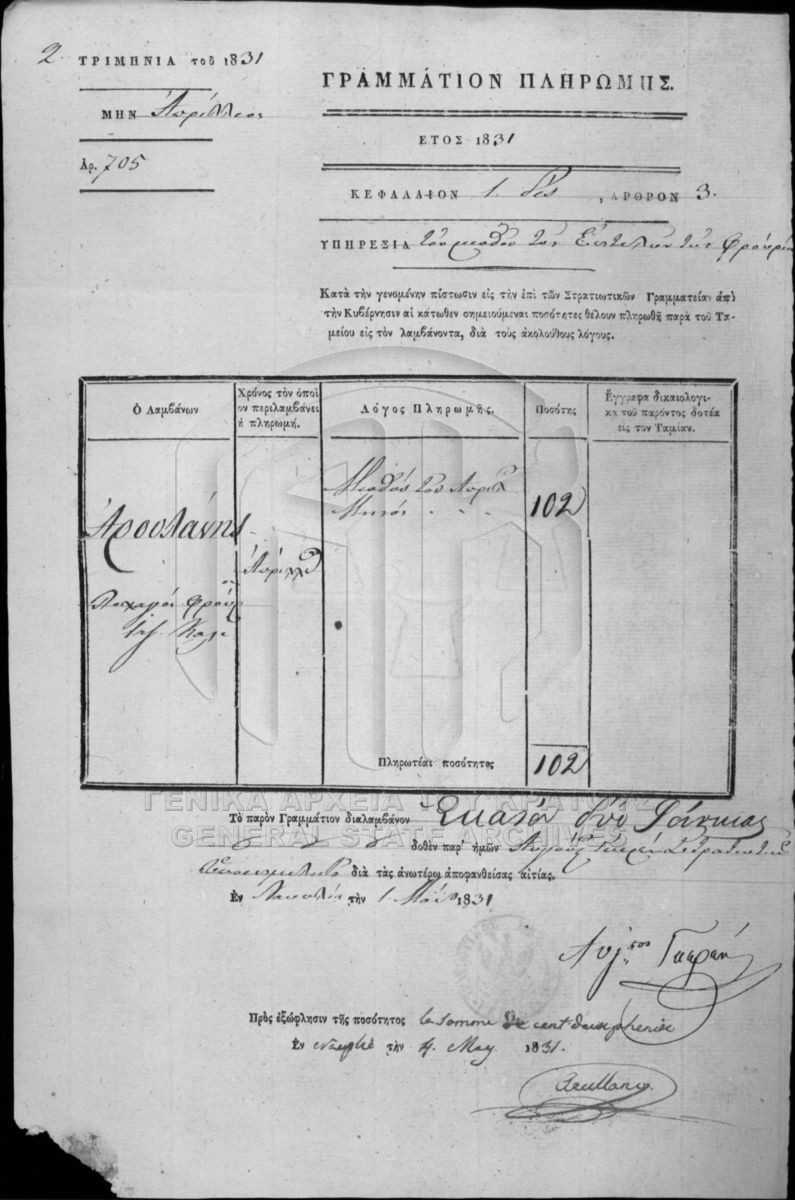 2 ΤΡΙΜΗΝΙΑ τοῦ 1831
ΜΗΝ Ἀπρίλλιος
Ἀρ. 705
ΓΡΑΜΜΑΤΙΟΝ ΠΛΗΡΩΜΗΣ.
ΕΤΟΣ 1831
ΚΕΦΑΛΑΙΟΝ 1. , ΑΡΘΡΟΝ 3.
ΥΠΗΡΕΣΙΑ τοῦ μισθοῦ τῶν
Κατὰ τὴν γενομένην πίστωσιν εἰς τὴν ἐπὶ τῶν Στρατιωτικῶν Γραμματείαν ἀπὸ
τὴν Κυβέρνησιν αἱ κάτωθεν σημειούμεναι ποσότητες θέλουν πληρωθῆ παρὰ τοῦ Τα-
μείου εἰς τὸν λαμβάνοντα, διὰ τοὺς ἀκολούθους λόγους.
Ὁ Λαμβάνων
Χρόνος τὸν ὁποῖ
ον περιλαμβάνει
ἡ πληρωμή.
Λόγος Πληρωμῆς.
Ποσότης
Ἔγγραφα δικαιολογι-
κὰ τοῦ παρόντος δοτέα
εἰς τὸν Ταμίαν.
Μισθὸς τοῦ Ἀπριλ
Μηνός
102
Πληρωτέαι ποσότητες
102
Τὸ παρὸν Γραμμάτιον διαλαμβάνον Ἑκατὸν δύο Φοίνικας
δοθὲν παρ' ἡμῶν
διὰ τὰς ἀνωτέρω ἀποφανθείσας αἰτίας.
Ἐν τὴν 1 Μαΐου 1831
Πρὸς ἐξώφλησιν τῆς ποσότητος la somme de cent deux phenix
Ἐν τὴν 4. May 1831.
ΓΕΝΙΚΑ ΑΡΧΕΙΑ ΤΟΥ ΚΡΑΤΟΥΣ
GENERAL STATE ARCHIVES